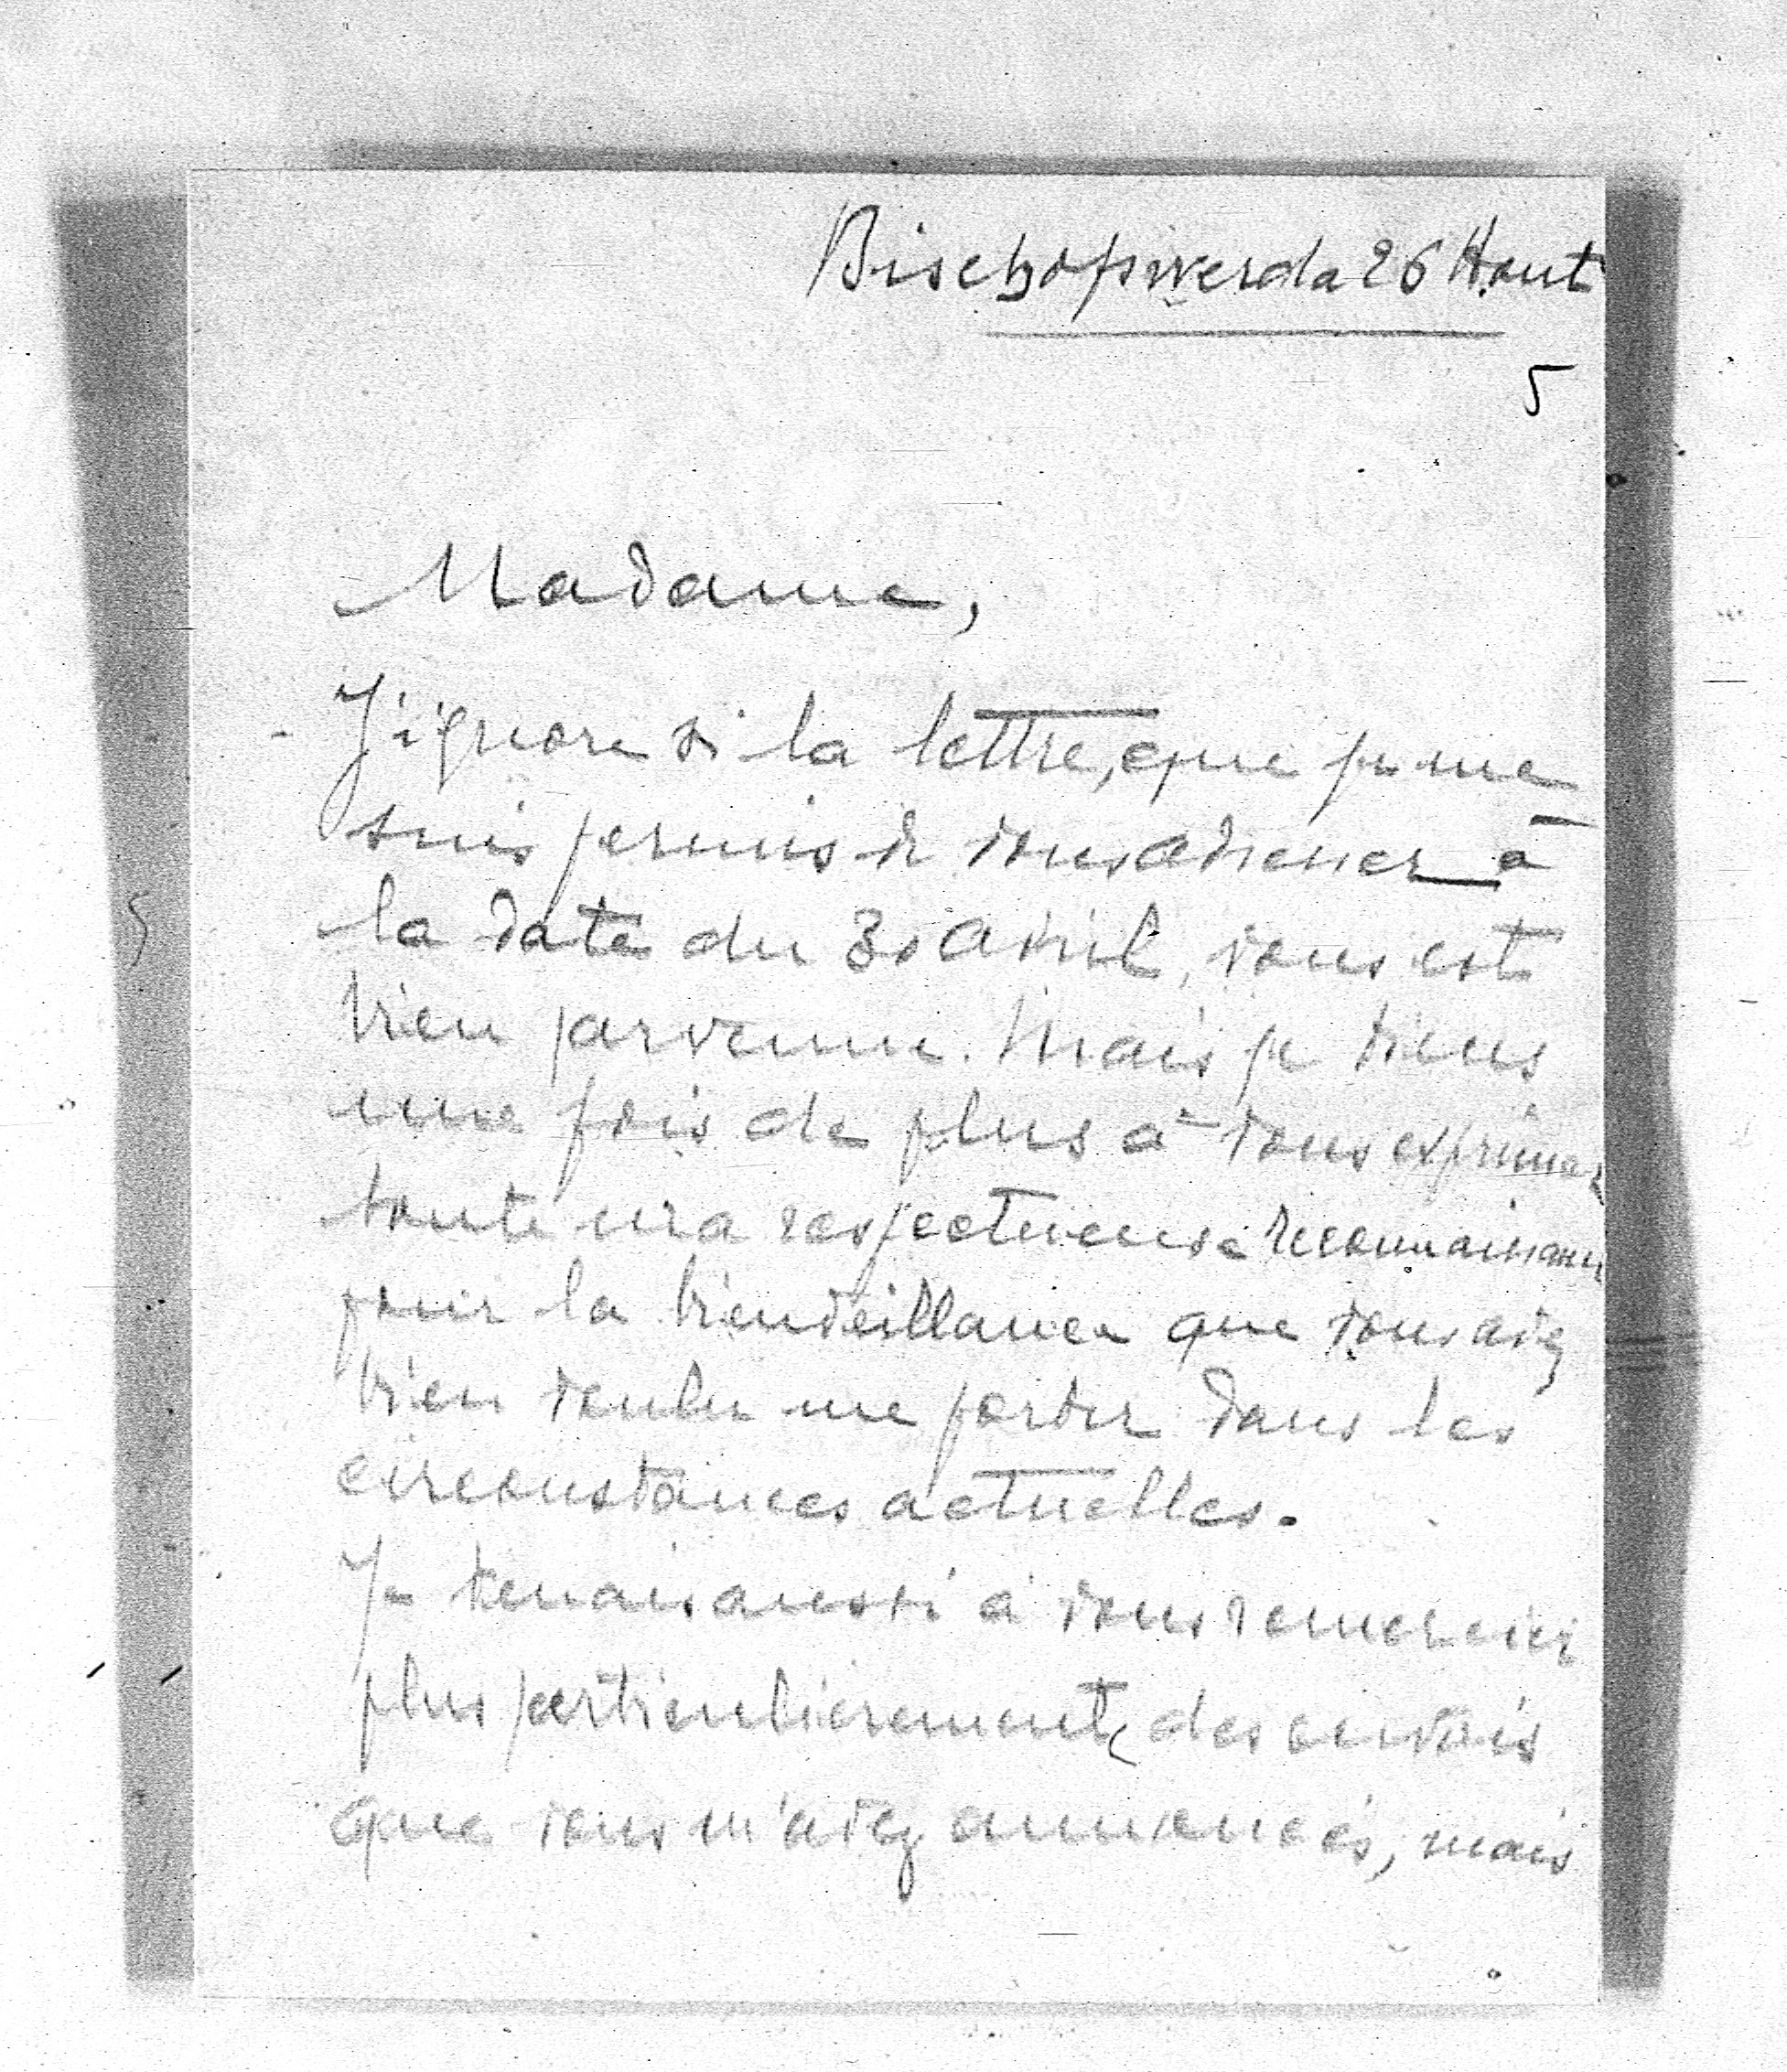 Bischofswerda 26 Aout
5
Madame,
J'ignore si la lettre, que je me
suis permis de vous adresser à
la date du 30 Avril, vous est
bien parvenue. Mais je tiens
une fois de plus à vous exprimer
toute ma respectueuse reconnaissance
pour la bienveillance que vous avez
bien voulu me porter dans les
circonstances actuelles.
Je tenais aussi à vous remercier
plus particulièrement, des envois
que vous m'avez annoncés, mais